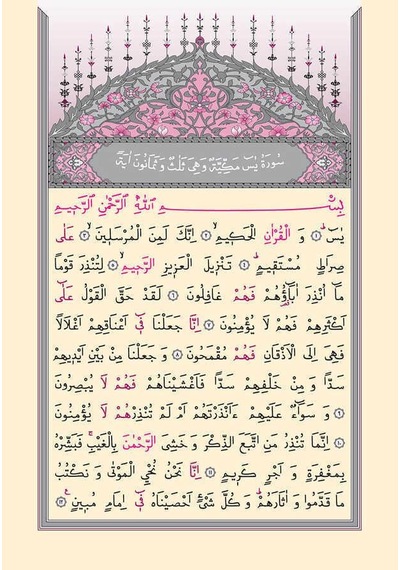 سُورَةُ يٰسٓ مَكِّيَّةٌ وَهِىَ ثَلٰثٌ وَثَمَانُونَ اٰيَةً
بِسْمِ اللّٰهِ الرَّحْمٰنِ الرَّحِيمِ
يٰسٓ ﴿١﴾ وَ الْقُرْاٰنِ الْحَكِيمِ ﴿٢﴾ اِنَّكَ لَمِنَ الْمُرْسَلِينَ ﴿٣﴾ عَلٰى
صِرَاطٍ مُسْتَقِيمٍ ﴿٤﴾ تَنْزِيلَ الْعَزِيزِ الرَّحِيمِ ﴿٥﴾ لِتُنْذِرَ قَوْمًا
مَٓا اُنْذِرَ اٰبَٓاؤُ۬هُمْ فَهُمْ غَافِلُونَ ﴿٦﴾ لَقَدْ حَقَّ الْقَوْلُ عَلٰٓى
اَكْثَرِهِمْ فَهُمْ لَا يُؤْمِنُونَ ﴿٧﴾ اِنَّا جَعَلْنَا فِٓى اَعْنَاقِهِمْ اَغْلَالًا
فَهِىَ اِلَى الْاَذْقَانِ فَهُمْ مُقْمَحُونَ ﴿٨﴾ وَ جَعَلْنَا مِنْ بَيْنِ اَيْدِيهِمْ
سَدًّا وَ مِنْ خَلْفِهِمْ سَدًّا فَاَغْشَيْنَاهُمْ فَهُمْ لَا يُبْصِرُونَ
﴿٩﴾ وَ سَوَٓاءٌ عَلَيْهِمْ ءَاَنْذَرْتَهُمْ اَمْ لَمْ تُنْذِرْهُمْ لَا يُؤْمِنُونَ
﴿١٠﴾ اِنَّمَا تُنْذِرُ مَنِ اتَّبَعَ الذِّكْرَ وَ خَشِىَ الرَّحْمٰنَ بِالْغَيْبِ فَبَشِّرْهُ
بِمَغْفِرَةٍ وَ اَجْرٍ كَرِيمٍ ﴿١١﴾ اِنَّا نَحْنُ نُحْيِ الْمَوْتٰى وَ نَكْتُبُ
مَا قَدَّمُوا وَ اٰثَارَهُمْ وَ كُلَّ شَىْءٍ اَحْصَيْنَاهُ فِٓى اِمَامٍ مُبِينٍ ﴿١٢﴾